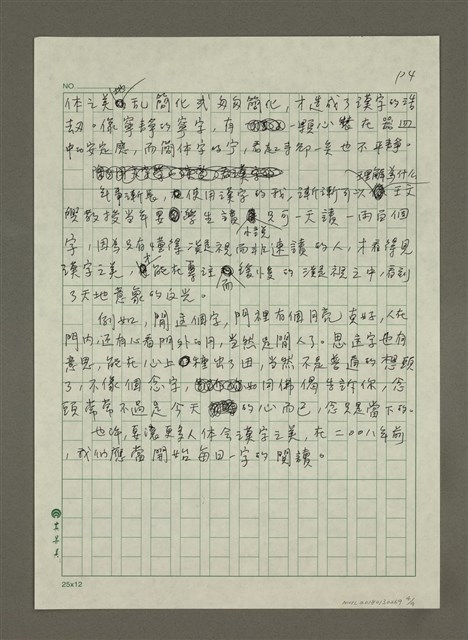 NO.
P4
体之美,乱簡化或匆匆簡化,才造成了漢字的浩
地
劫。像寧靜的寧字,有一顆心在器皿
中的安定感,而簡体字的宁,看起來卻一矣也不平靜。
年事漸長,使用漢字的我,漸漸可以王文
理解為什么
興教授當年要學生讀只可一天讀一兩百個
小說
字,因為只有懂得凝視而非速讀的人,才看得見
漢字之美,才能在專注而緩慢的凝視之中,看到
了天地意象的反光。
例如,閒這個字,門裡有個月亮真好,人在
門內还有心看門外的月,當然是閒人了。思這字也有
意思,能在心上種出了田,當然不是普通的想頭
了,不像個念字,如同佛偈告訴你,念
頭常常不過是今天的心而已,念只是當下的。
也許,要讓更多人体会漢字之美,在二〇〇八年前
,我們應當開始每日一字的閱讀。
25x12